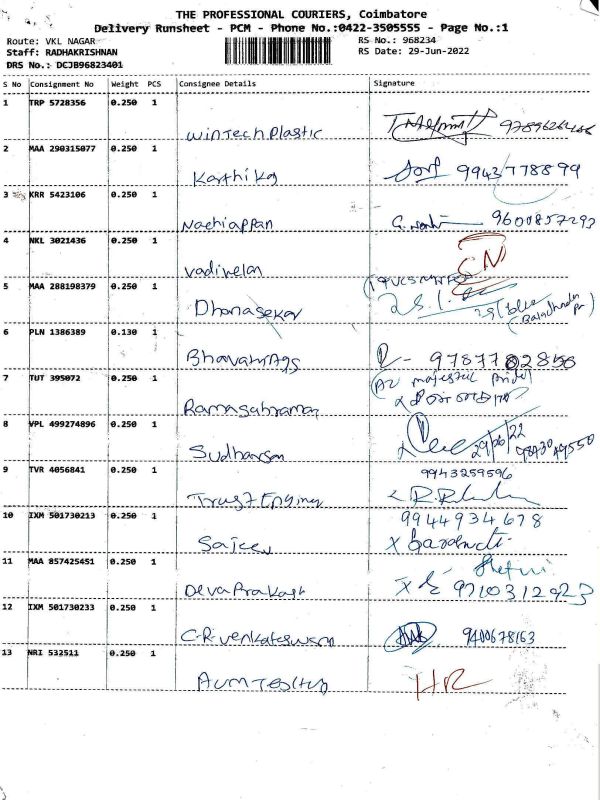 THE PROFESSIONAL COURIERS, Coimbatore
Delivery Runsheet - PCM - Phone No.:0422-3505555 - Page No.:1
Route: VKL NAGAR RS No.: 968234
Staff: RADHAKRISHNAN RS Date: 29-Jun-2022
DRS No.: DCJB96823401
S No Consignment No Weight PCS Consignee Details Signature
1 TRP 5728356 0.250 1
wintech plastic
2 MAA 290315077 0.250 1
Karthika 9943778899
3 KRR 5423106 0.250 1
Nachiappan 9600857293
4 NKL 3021436 0.250 1
Vadivelan
5 MAA 288198379 0.250 1
Dhanasekar
6 PLN 1386389 0.130 1
9787702850
7 TUT 395072 0.250 1
majestic pride
8 VPL 499274896 0.250 1
Sudharsan 29/06/22
9 TVR 4056841 0.250 1
9943259596
10 IXM 501730213 0.250 1
9944934678
Sajeev
11 MAA 857425451 0.250 1
Deva Prakash 9710312923
12 IXM 501730233 0.250 1
C.R. Venkateswaran 9400678163
13 NRI 532511 0.250 1
HR